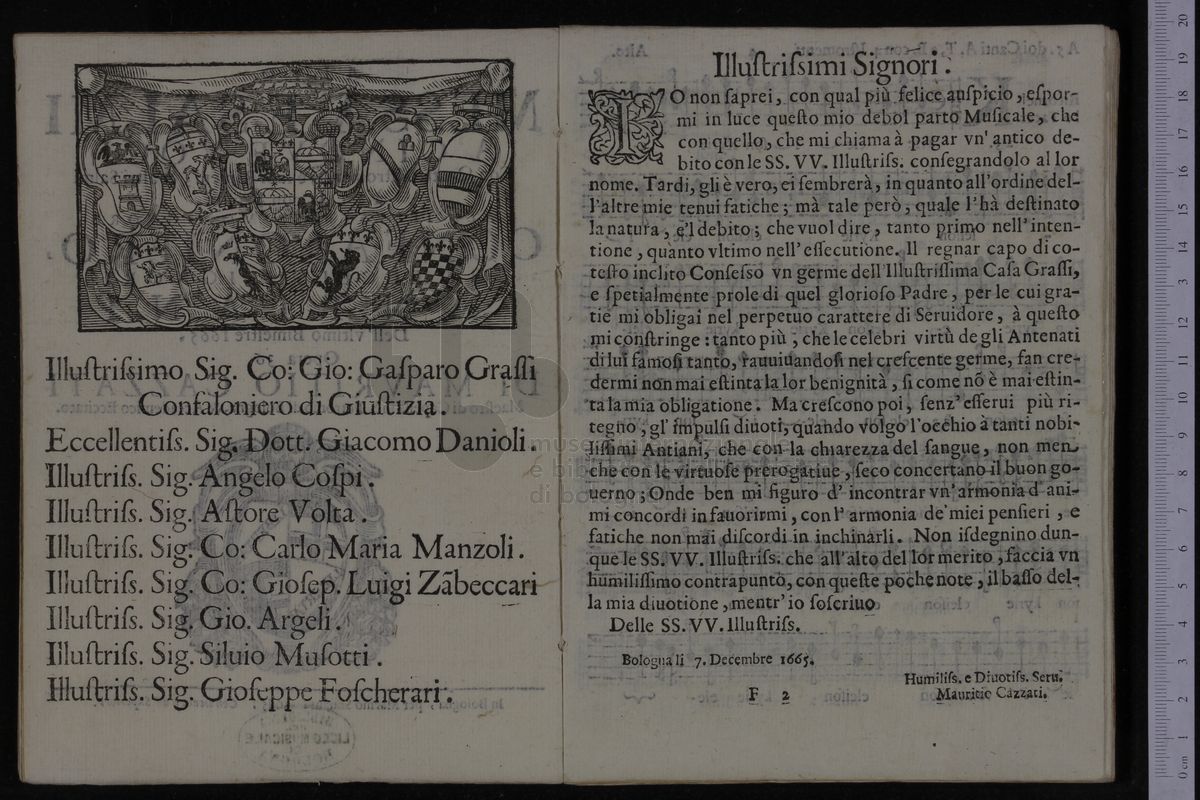 Illuſtriſsimo Sig. Co: Gio: Gaſparo Graſſi
Confaloniero di Giuſtizia.
Eccellentiſs. Sig. Dott. Giacomo Danioli.
Illuſtriſs. Sig. Angelo Coſpi.
Illuſtriſs. Sig. Aſtore Volta.
Illuſtriſs. Sig. Co: Carlo Maria Manzoli.
Illuſtriſs. Sig. Co: Gioſep. Luigi Zãbeccari
Illuſtriſs. Sig. Gio. Argeli.
Illuſtriſs. Sig. Siluio Muſotti.
Illuſtriſs. Sig. Gioſeppe Foſcherari.
Illuſtriſsimi Signori.
IO non ſaprei, con qual più felice auſpicio, eſpor-
mi in luce queſto mio debol parto Muſicale, che
con quello, che mi chiama à pagar vn' antico de-
bito con le SS. VV. Illuſtriſs. conſegrandolo al lor
nome. Tardi, gli è vero, ei ſembrerà, in quanto all'ordine del-
l'altre mie tenui fatiche; mà tale però, quale l'hà deſtinato
la natura, e'l debito; che vuol dire, tanto primo nell' inten-
tione, quànto vltimo nell' eſſecutione. Il regnar capo di co-
teſto inclito Conſeſso vn germe dell'Illuſtriſſima Caſa Graſſi,
e ſpetialmente prole di quel glorioſo Padre, per le cui gra-
tie mi obligai nel perpetuo carattere di Seruidore, à queſto
mi conſtringe: tanto più, che le celebri virtù de gli Antenati
di lui famoſi tanto, rauuiuandoſi nel creſcente germe, fan cre-
dermi non mai eſtinta la lor benignità, ſi come nõ è mai eſtin-
ta la mia obligatione. Ma creſcono poi, ſenz' eſſerui più ri-
tegno, gl' impulſi diuoti, quando volgo l'occhio à tanti nobi-
liſſimi Antiani, che con la chiarezza del ſangue, non men
che con le virtuoſe prerogatiue, ſeco concertano il buon go-
uerno; Onde ben mi figuro d' incontrar vn'armonia d'ani-
mi concordi in fauorirmi, con l' armonia de' miei penſieri, e
fatiche non mai diſcordi in inchinarli. Non iſdegnino dun-
que le SS. VV. Illuſtriſs. che all'alto del lor merito, faccia vn
humiliſſimo contrapunto, con queſte poche note, il baſſo del-
la mia diuotione, mentr' io ſoſcriuo
Delle SS. VV. Illuſtriſs.
Bologna li 7. Decembre 1665.
Humiliſs. e Diuotiſs. Seru.
Mauritio Cazzati.
F 2